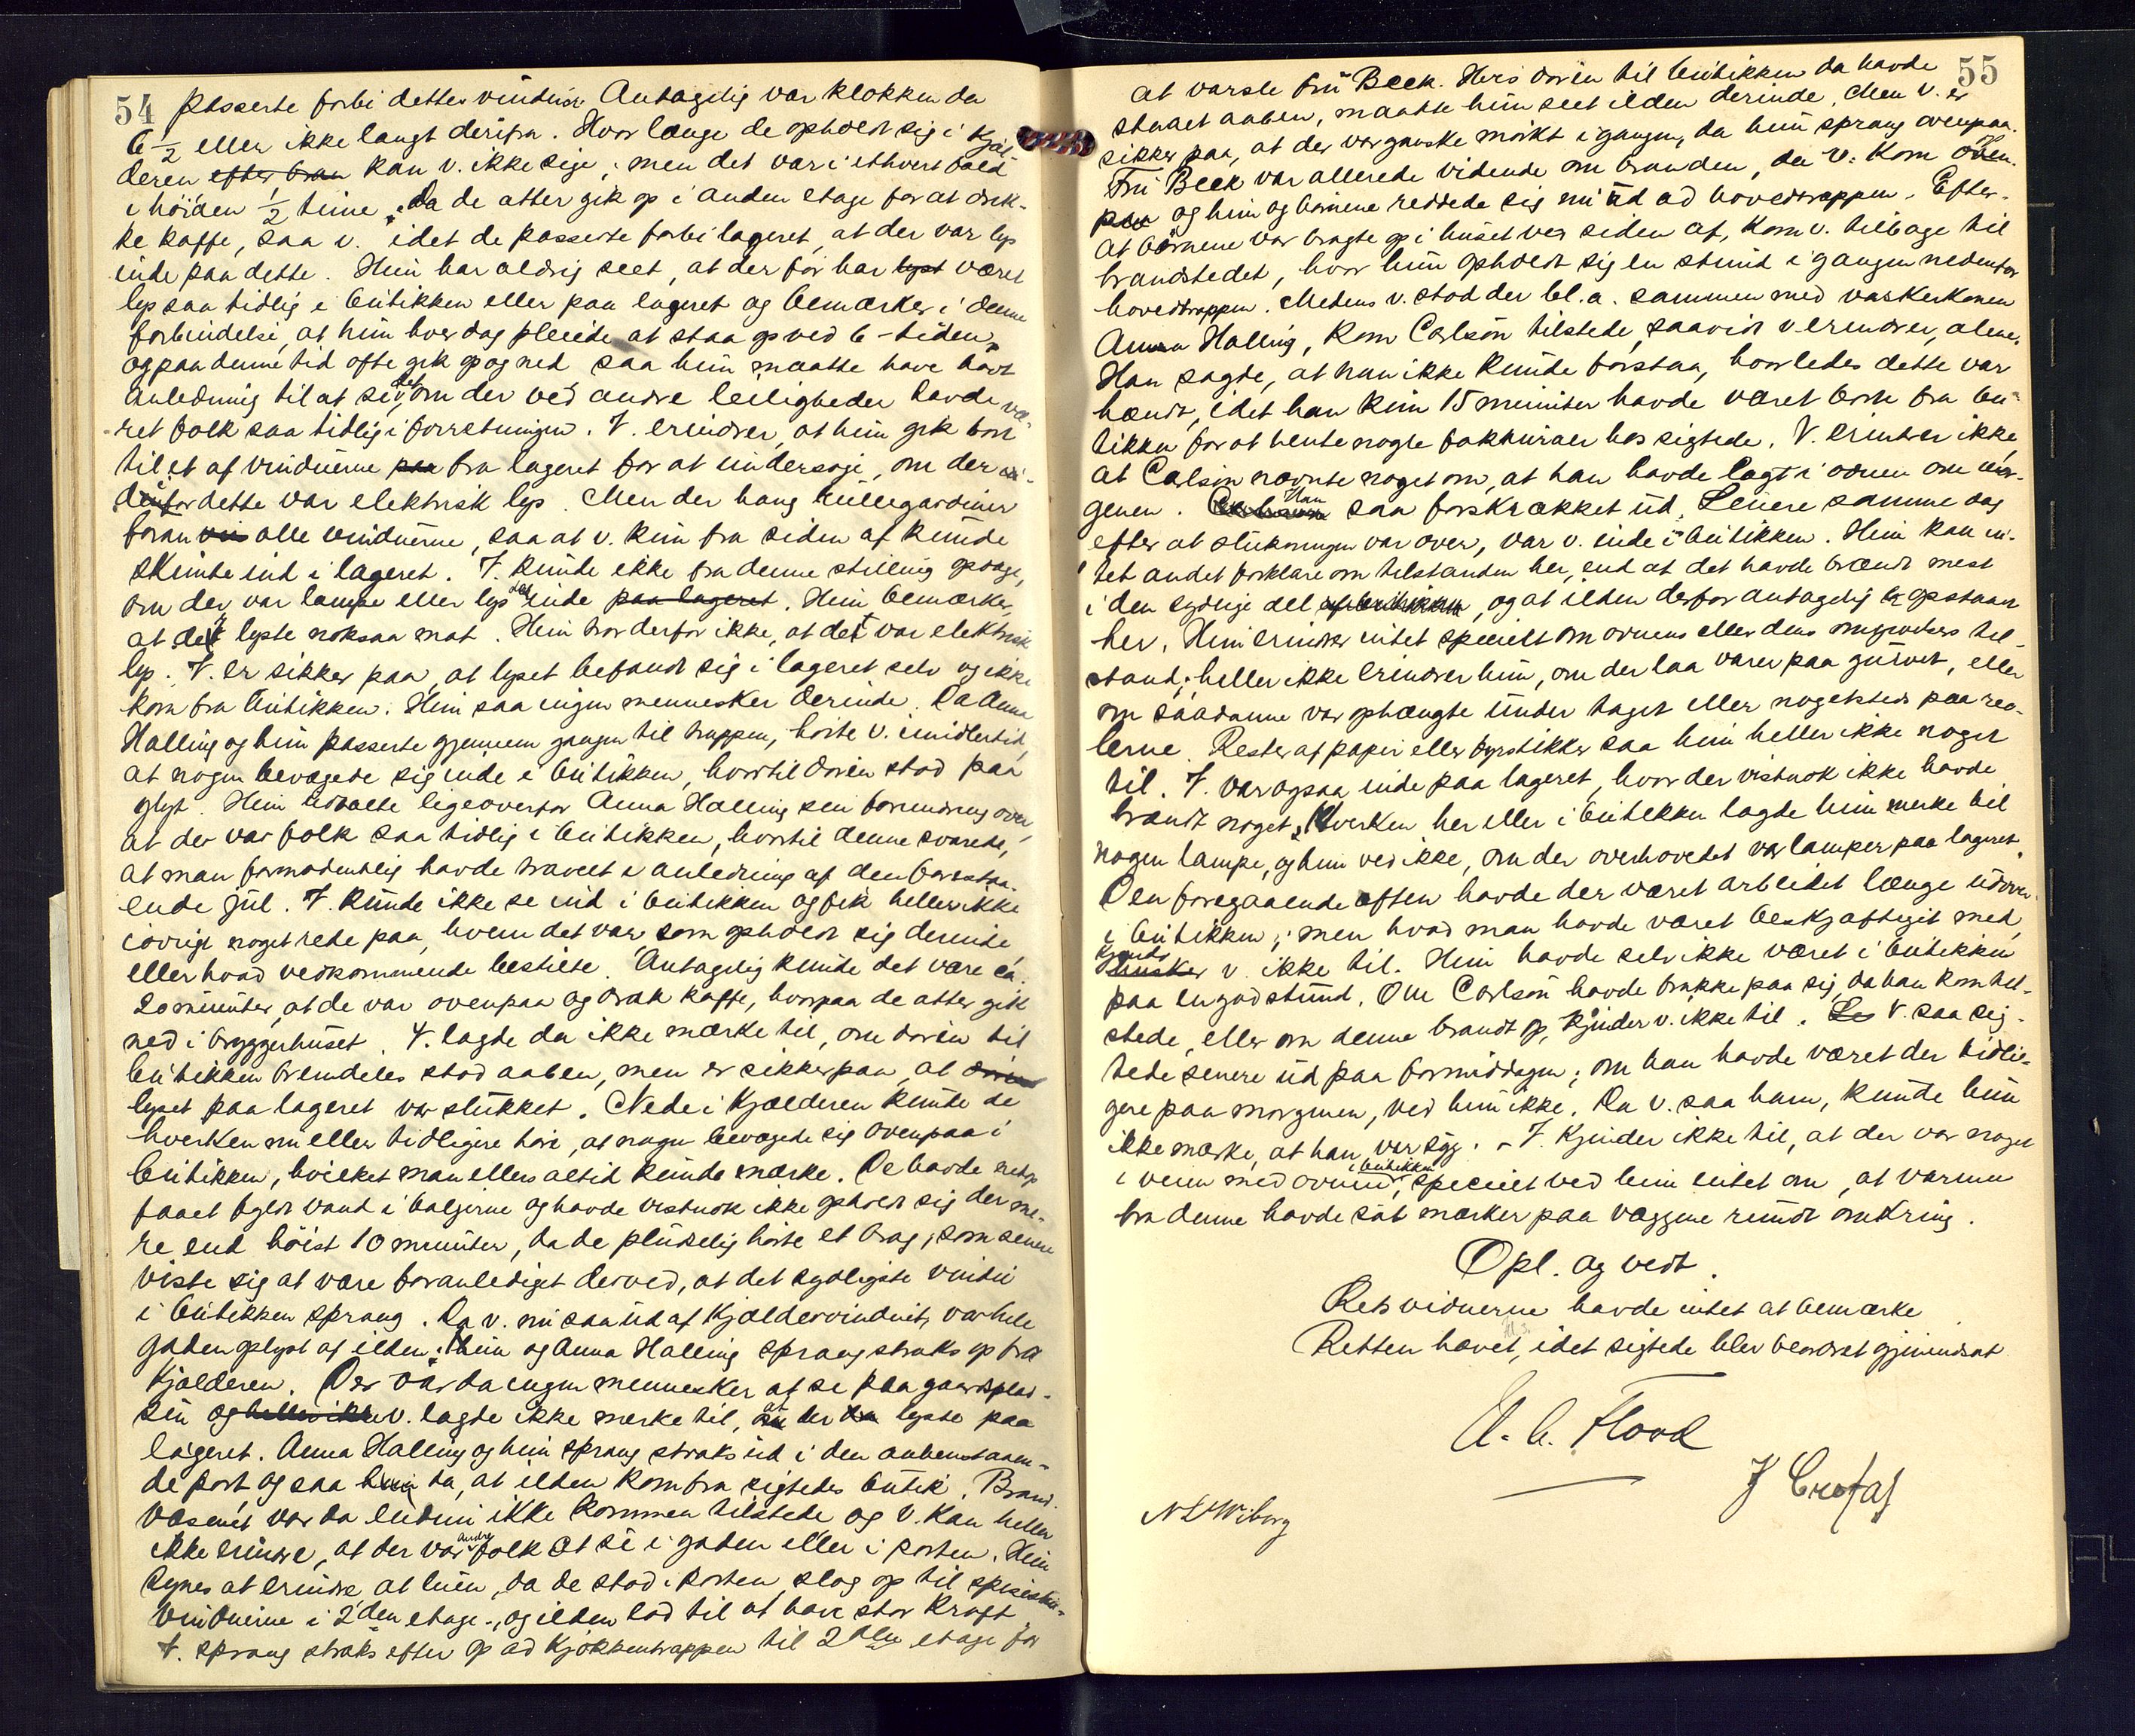 54
passerte forbi dettes vinduer. Antagelig var klokken da
6 1/2 eller ikke langt derifra. Hvor længe de opholdt sig i kjæl-
deren efter kan v. ikke sige, men det var i ethvert fald
i høiden 1/2 time. Da de atter gik op i anden etage for at drik-
ke kaffe, saa v. idet de passerte forbi lageret, at der var lys
inde paa dette. Hun har aldrig seet, at der før har lyst været
lys saa tidlig i butikken eller paa lageret og bemærker i denne
forbindelse, at hun hver dag pleiede at staa op ved 6-tiden,
og paa denne tid ofte gik op og ned saa hun maatte have havt
anledning til at se det, om der ved andre leiligheder havde væ-
ret folk saa tidlig i forretningen. V. erindrer, at hun gik bort
til et af vinduerne paa fra lageret for at undersøge, om der
indenfor dette var elektrisk lys. Men der hang rullegardiner
foran alle vinduerne, saa at v. kun fra siden af kunde
skimte ind i lageret. V. kunde ikke fra denne stilling opdage,
om der var lampe eller lys der inde paa lageret. Hun bemærker,
at det lyste noksaa mat. Hun tror derfor ikke, at det var elektrisk
lys. V. er sikker paa, at lyset befandt sig i lageret selv og ikke
kom fra butikken. Hun saa ingen mennesker derinde. Da Anna
Halling og hun passerte gjennem gangen til trappen, hørte v. imidlertid,
at nogen bevægede sig inde i butikken, hvortil døren stod paa
glyt. Hun udtalte ligeoverfor Anna Halling sin forundring over,
at der var folk saa tidlig i butikken, hvortil denne svarede,
at man formodentlig havde travelt i anledning af den forestaa-
ende jul. V. kunde ikke se ind i butikken og fik heller ikke
iøvrigt noget rede paa, hvem det var som opholdt sig derinde
eller hvad vedkommende bestilte. Antagelig kunde det være ca.
20 minuter, at de var ovenpaa og drak kaffe, hvorpaa de atter gik
ned i bryggerhuset. V. lagde da ikke mærke til, om døren til
butikken fremdeles stod aaben, men er sikker paa, at døren
lyset paa lageret var slukket. Nede i kjælderen kunde de
hverken nu eller tidligere høre, at nogen bevægede sig ovenpaa i
butikken, hvilket man ellers altid kunde mærke. De havde netop
faaet fyldt vand i baljerne og havde vistnok ikke opholdt sig der me-
re end høist 10 minuter, da de pludselig hørte et brag, som senere
viste sig at være foranlediget derved, at det sydligste vindu
i butikken sprang. Da v. nu saa ud af kjældervinduet, var hele
gaden oplyst af ilden; hun og Anna Halling sprang straks op fra
kjælderen. Der var da ingen mennesker at se paa gaardsplad-
sen og heller ikke v. lagde ikke mærke til, at der lyste paa
lageret. Anna Halling og hun sprang straks ud i den aabenstaaen-
de port og saa da, at ilden kom fra sigtedes butik. Brand-
væsenet var da endnu ikke kommen tilstede og v. kan heller
ikke erindre, at der var andre folk at se i gaden eller i porten. Hun
synes at erindre, at luen, da de stod i porten, slog op til spisestue-
vinduerne i 2den etage, og ilden lod til at have stor kraft
V. sprang straks efter op ad kjøkkentrappen til 2den etage for
55
at varsle fru Beck. Hvis døren til butikken da havde
staaet aaben, maatte hun seet ilden derinde. Men v. er
sikker paa, at der var ganske mørkt i gangen, da hun sprang ovenpaa.
Fru Beck var allerede vidende om branden, da v. kom oven-
paa og hun og børnene reddede sig nu ud ad hovedtrappen. Efter-
at børnene var bragte op i huset ved siden af, kom v. tilbage til
brandstedet, hvor hun opholdt sig en stund i gangen nedenfor
hovedtrappen. Medens v. stod der bl. a. sammen med vaskerkonen
Anna Halling, kom Carlson tilstede, saavidt v. erindrer, alene.
Han sagde, at han ikke kunde forstaa, hvorledes dette var
hændt, idet han kun 15 minuter havde været borte fra bu-
tikken for at hente nogle fakturaer hos sigtede. V. erindrer ikke,
at Calson nævnte noget om, at han havde lagt i ovnen om mor-
genen. Han saa forskrækket ud. Senere samme dag
efter at slukningen var over, var v. inde i butikken. Hun kan in-
tet andet forklare om tilstanden her, end at det havde brændt mest
i den sydlige del af butikken, og at ilden derfor antagelig er opstaaet
her. Hun erindrer intet specielt om ovnens eller dens omgivelsers til-
stand; heller ikke erindrer hun, om der laa varer paa gulvet, eller
om saadanne var ophængte under taget eller nogetsteds paa reo-
lerne. Rester af papir eller fyrstikker saa hun heller ikke noget
til. V. var ogsaa inde paa lageret, hvor der vistnok ikke havde
brændt noget. Hverken her eller i butikken lagde hun merke til
nogen lampe, og hun ved ikke, om der overhovedet var lamper paa lageret.
Den foregaaende aften havde der været arbeidet længe udover
i butikken; men hvad man havde været beskjæftiget med,
kjender v. ikke til. Hun havde selv ikke været i butikken
paa en god stund. Om Carlson havde frakke paa sig, da han kom til-
stede, eller om denne brandt op, kjender v. ikke til. V. saa sig-
tede senere ud paa formiddagen; om han havde været der tidli-
gere paa morgenen, ved hun ikke. Da v. saa ham, kunde hun
ikke mærke, at han var syg. - V. kjender ikke til, at der var noget
i veien med ovnen i butikken, specielt ved hun intet om, at varmen
fra denne havde sat mærker paa væggene rundt omkring.
Opl. og vedt.
Retsvidnerne havde intet at bemærke
Retten hævet, idet sigtede blev beordret gjenindsat
Flood
N L Wiborg